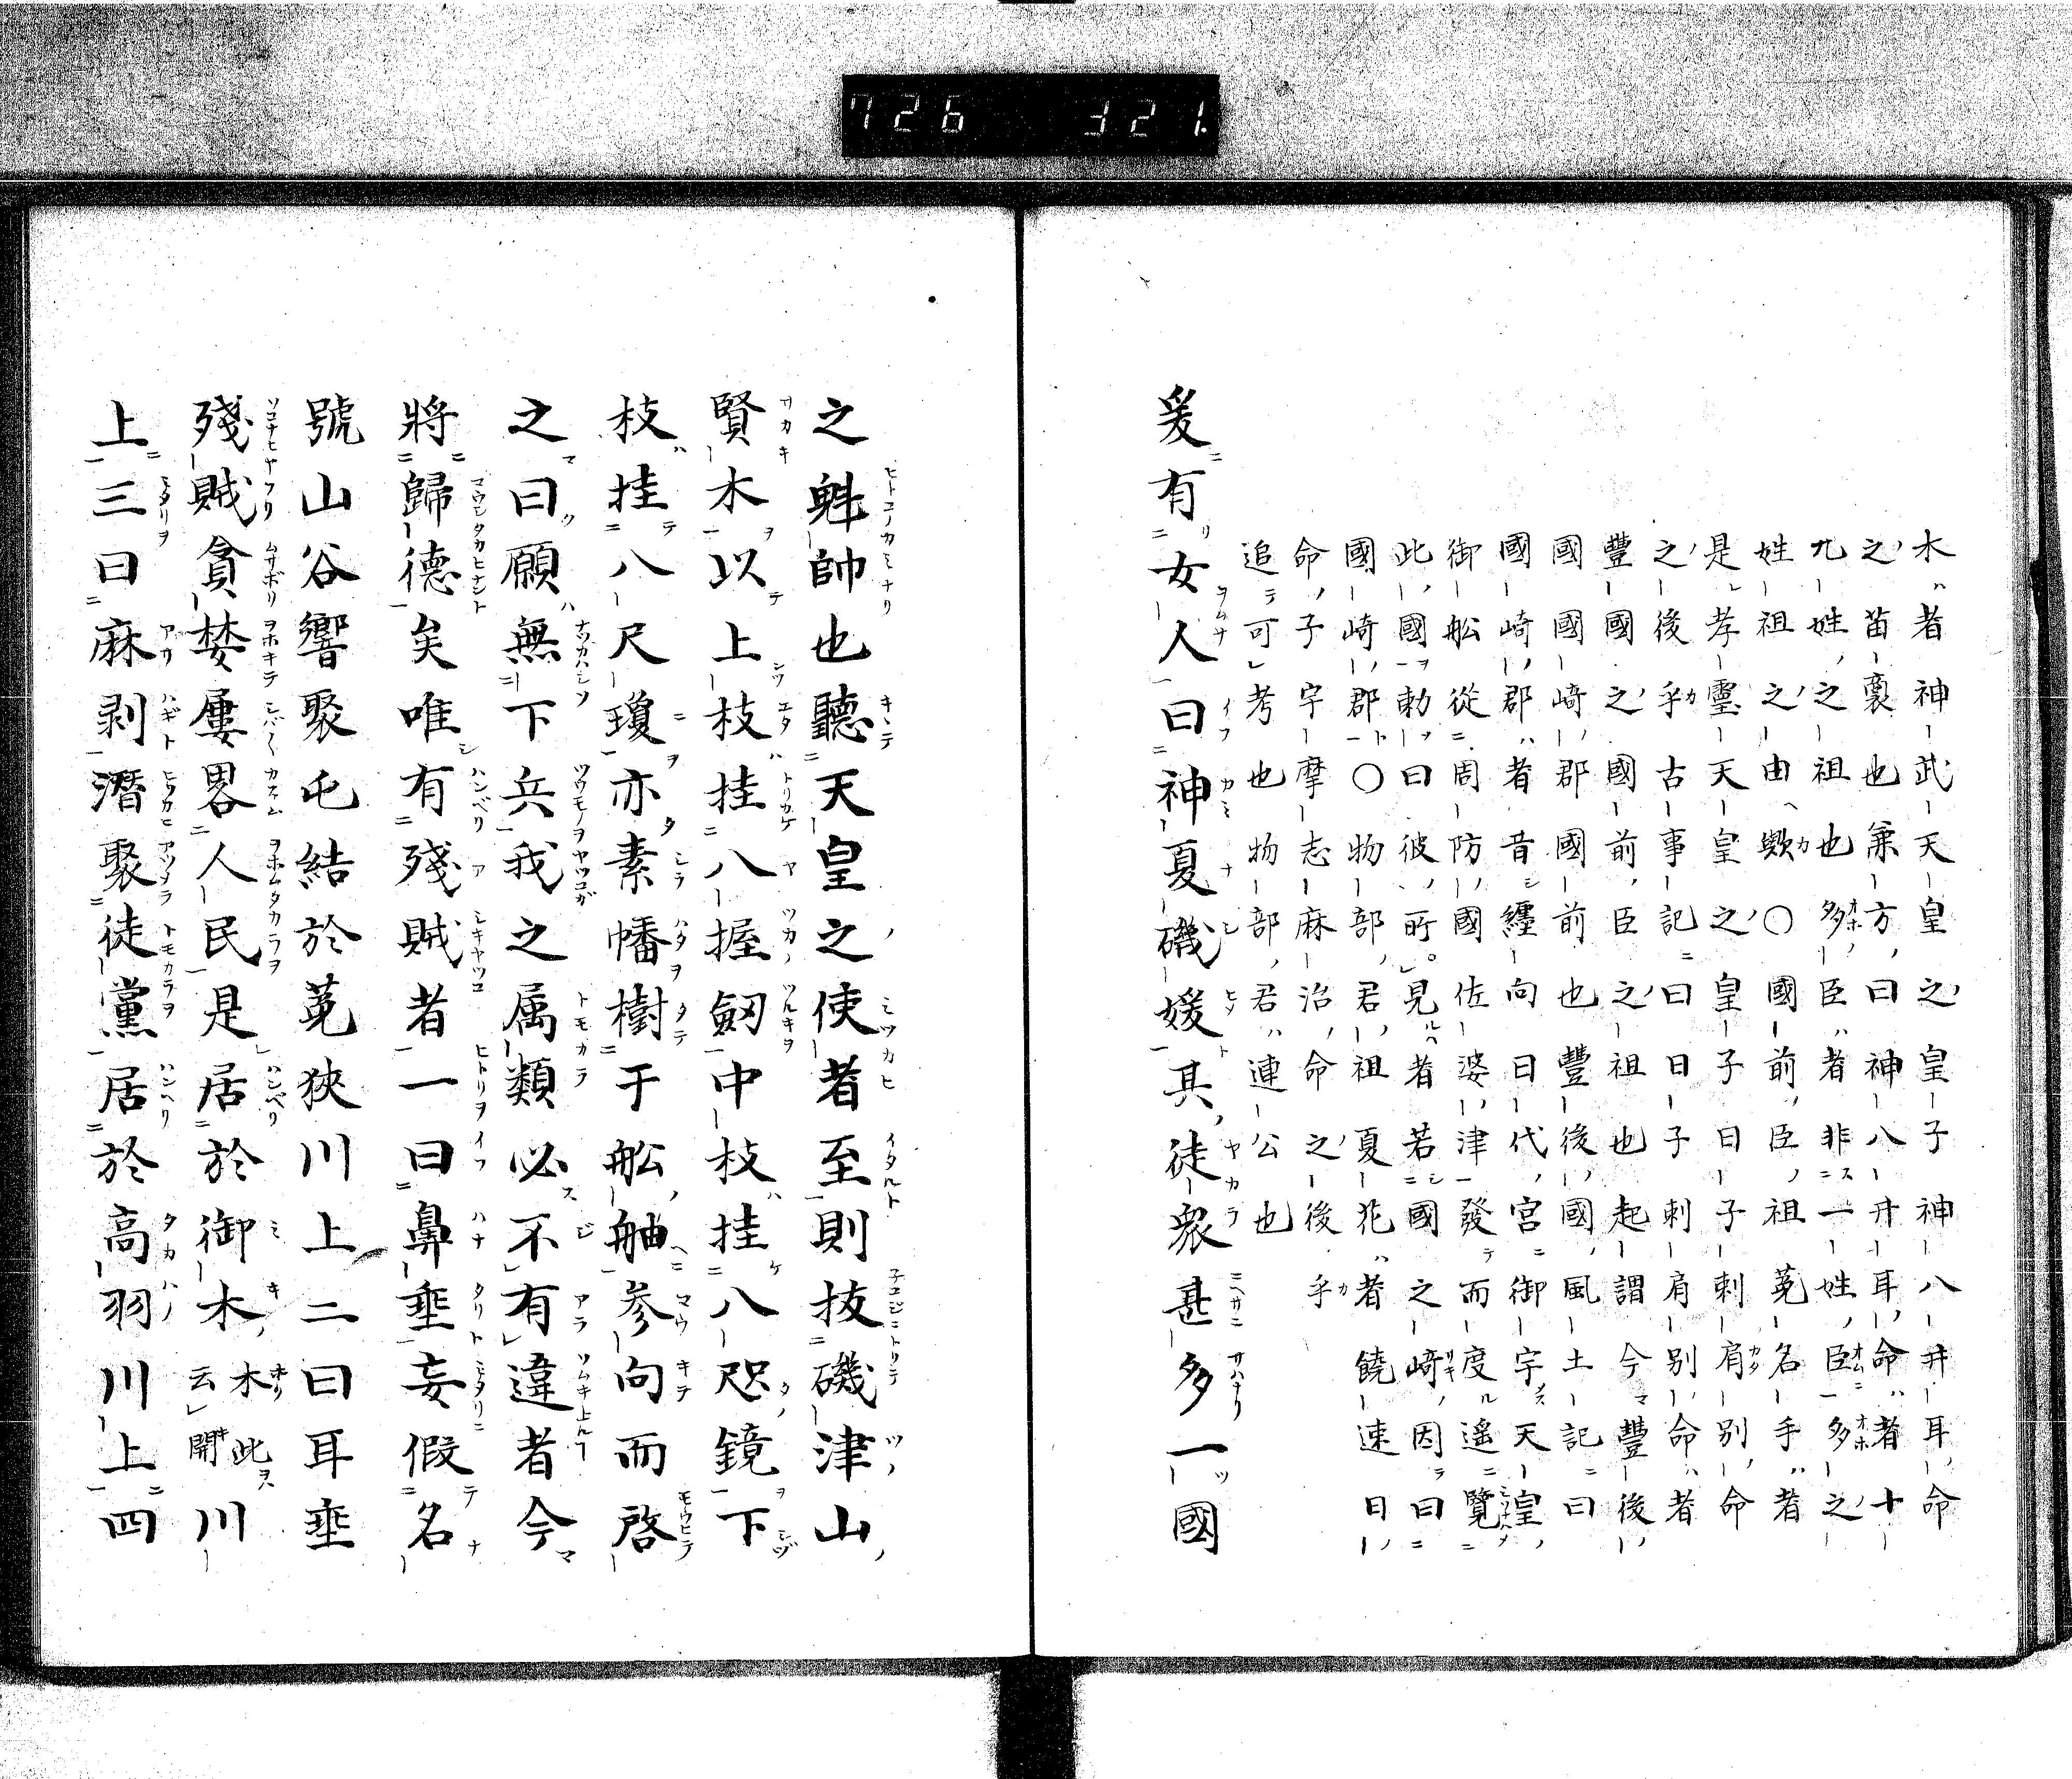 726 321.
木者神武天皇之皇子神八井耳命
之苗裔也兼方曰神八井耳命者十
九姓之祖也多臣者非一姓臣多之
姓祖之由歟〇國前臣祖菟名手者
是孝霊天皇之皇子日子刺肩别命
之後乎古事記曰日子刺肩别命者
豐國之國前臣之祖也起謂今豐後
國國﨑郡國前也豐後國風土記曰
國﨑郡者昔纒向日代宮御宇天皇
御舩從周防國佐婆津發而度遥覽
此國勅曰彼所見者若國之﨑因曰
國﨑郡〇物部君祖夏花者饒速日
命子宇摩志麻治命之後乎
追可考也物部君連公也
爰有女人曰神夏磯媛其徒衆甚多一國
之魁帥也聽天皇之使者至則抜磯津山
賢木以上枝挂八握劔中枝挂八咫鏡下
枝挂八尺瓊亦素幡樹于舩舳参向而啓
之曰願無下兵我之属類必不有違者今
將歸德矣唯有殘賊者一曰鼻垂妄假名
號山谷響聚屯結於菟狹川上二曰耳垂
殘賊貪婪屢畧人民是居於御木木此云開川
上三曰麻剥潛聚徒黨居於高羽川上四